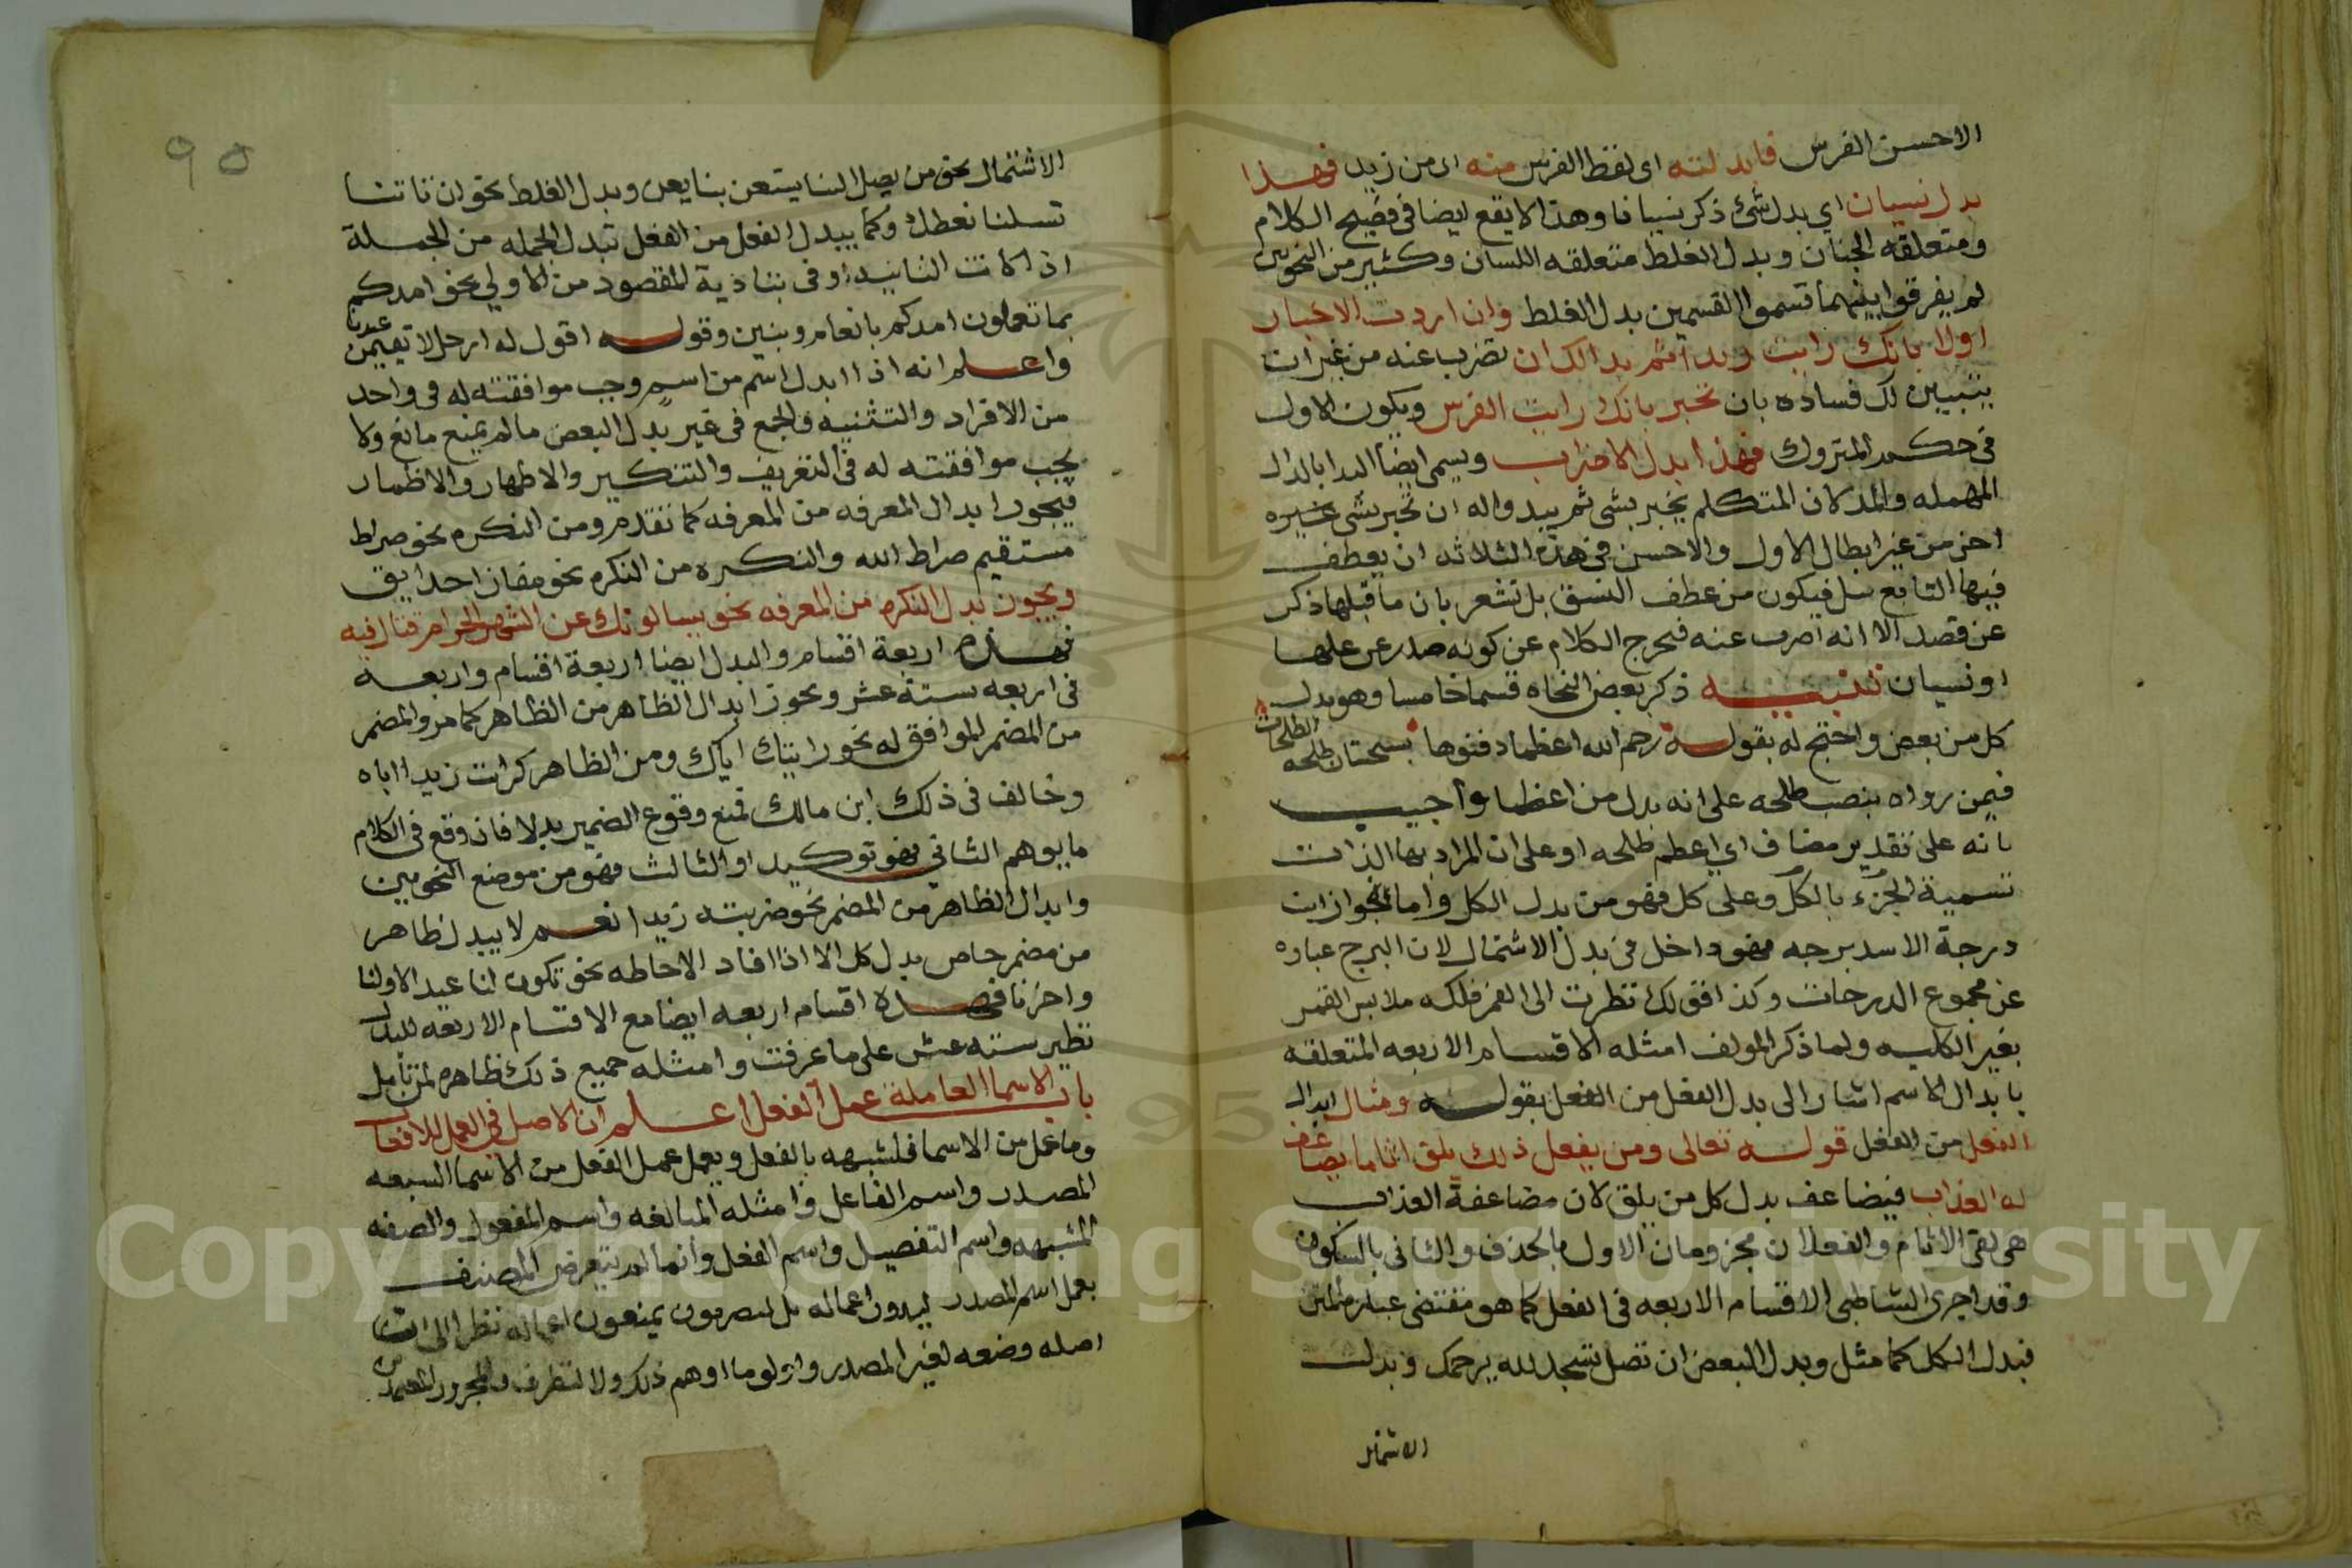 الاحسن الفرس فابدلته اى لفظ الفرس منه اى من زيد فهذا
بدل نسيان اي بدل شئ ذكر نسيانا وهذا لا يقع ايضا فى فصيح الكلام
ومتعلقه الجنان وبدل الغلط متعلقه اللسان وكثير من النحويين
لم يفرقوا بينهما فسموا القسمين بدل الغلط وان اردت الاخبار
اولا بانك رايت زيدا ثم بدا لك ان تضرب عنه من غير ان
يتبيين لك فساده بان تخبر بانك رايت الفرس ويكون الاول
فى حكم المتروك فهذا بدل الاضراب ويسمى ايضا البدا بالدال
المهمله والمد كان المتكلم يخبر بشى ثم يبدو اله ان تخبر بشى غيره
اخر من غير ابطال الاول والاحسن فى هذه الثلاثه ان يعطف
فيها التابع ببل فيكون من عطف النسق بل تشعر بان ما قبلها ذكر
عن قصد الا انه اضرب عنه فيخرج الكلام عن كونه صدر عن غلط
او نسيان تنبيه ذكر بعض النحاه قسما خامسا وهو بدل
كل من بعض واحتج له بقوله رحم الله اعظما دفنوها بسجستان طلحه الطلحات
فيمن رواه بنصب طلحه على انه بدل من اعظما واجيب
بانه على تقدير مضاف اي اعظم طلحه او على ان المراد بها الذات
تسمية الجزء بالكل وعلى كل فهو من بدل الكل واما نحو ازيت
درجة الاسد برجه فهو داخل فى بدل الاشتمال لان البرج عباره
عن مجموع الدرجات وكذا فولك نظرت الى القمر فلكه ملابس القمر
بغير الكليه ولما ذكر المولف امثله الاقسام الاربعه المتعلقه
بابدال الاسم اشار الى بدل الفعل من الفعل بقوله ومثال ابدال
الفعل من الفعل قوله تعالى ومن يفعل ذلك يلق اثاما يضاعف
له العذاب فيضاعف بدل كل من يلق لان مضاعفة العذاب
هى لقى الاثام والفعلان مجزومان الاول بالحذف والثانى بالسكون
وقد اجرى الشاطبى الاقسام الاربعه فى الفعل كما هو مقتضى عبارة المتن
فبدل الكل كما مثل وبدل البعض ان تصل تسجد لله يرحمك وبدل
الاشتمال
٩٥
الاشتمال نحو من يصل الينا يستعن بنا يعن وبدل الغلط نحو ان تاتنا
تسلنا نعطك وكما يبدل الفعل من الفعل تبدل الجمله من الجملة
اذا كانت الثانيه اوفى بتاذية المقصود من الاولي نحو امدكم
بما تعملون امدكم بانعام وبنين وقوله اقول له ارحل لا تقيمن عندنا
واعلم انه اذا ابدل اسم من اسم وجب موافقته له فى واحد
من الافراد والتثنيه والجمع فى غير بدل البعض ما لم يمنع مانع ولا
يجب موافقته له فى التعريف والتنكير والاظهار والاضمار
فيجوز ابدال المعرفه من المعرفه كما تقدم ومن النكره نحو صراط
مستقيم صراط الله والنكره من النكره نحو مفازا حدايق
ويجوز بدل النكره من المعرفه نحو يسالونك عن الشهر الحرام قتال فيه
فهذه اربعة اقسام والبدل ايضا اربعة اقسام واربعه
فى اربعه ستة عشر ويجوز ابدال الظاهر من الظاهر كما مر والمضمر
من المضمر الموافق له نحو رايتك اياك ومن الظاهر كرايت زيدا اياه
وخالف فى ذلك ابن مالك فمنع وقوع الضمير بدلا فان وقع فى الكلام
ما يوهم الثاني فهو توكيد او الثالث فهو من موضع النحويين
وابدال الظاهر من المضمر نحو ضربته زيدا نعم لا يبدل ظاهر
من مضمر حاضر بدل كل الا اذا افاد الاحاطه نحو تكون لنا عيدا لاولنا
واخرنا فهذه اقسام اربعه ايضا مع الاقسام الاربعه للبدل
نظير سته عشر على ما عرفت وامثله جميع ذلك ظاهره لمن تامل
باب الاسما العاملة عمل الفعل اعلم ان الاصل فى العمل للافعال
وما عمل من الاسما فلشبهه بالفعل ويعمل عمل الفعل من الاسما السبعه
المصدر واسم الفاعل وامثله المبالغه واسم المفعول والصفه
المشبهه واسم التفضيل واسم الفعل وانما لم يتعرض المصنف
بعمل اسم المصدر اعماله بل البصريون يمنعون اعماله نظرا الى ان
اصله وضعه لغير المصدر واولوا ما اوهم ذلك ولا للظرف والمجرور
Copyright © King Saud University
95